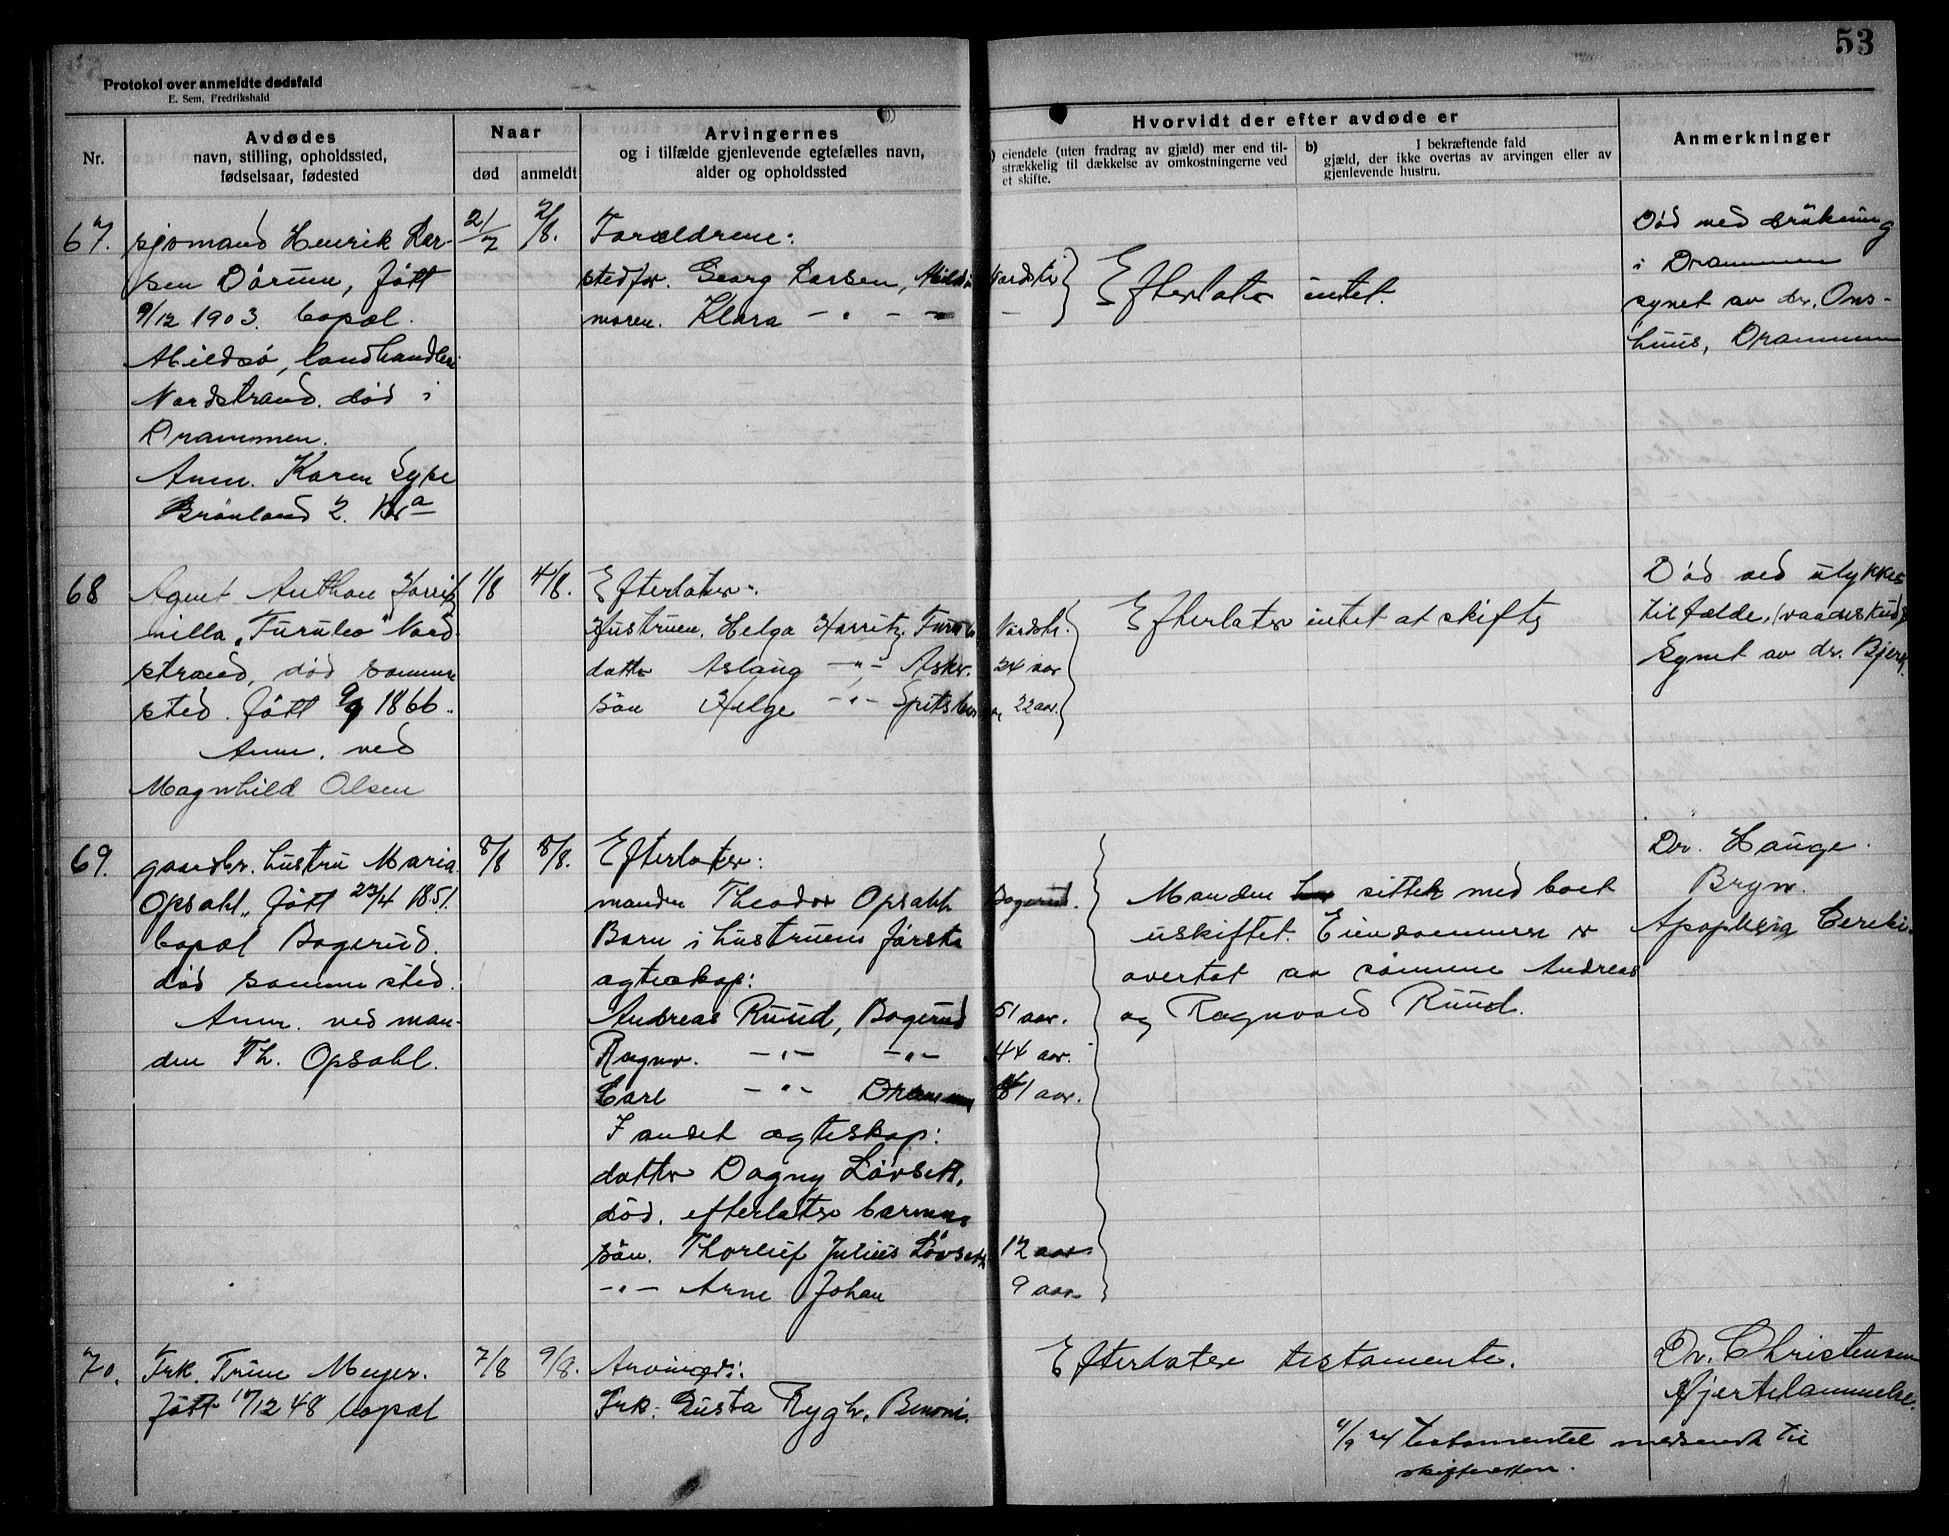 53
Protokol over anmeldte dødsfald
E. Sem, Fredrikshald
Nr.
Avdødes
navn, stilling, opholdssted,
fødselsaar, fødested
Naar
død
anmeldt
Arvingernes
og i tilfælde gjenlevende egtefælles navn,
alder og opholdssted
Hvorvidt der efter avdøde er
eiendele (uten fradrag av gjæld) mer end til-
strækkelig til dækkelse av omkostningerne ved
et skifte.
b) I bekræftende fald
gjæld, der ikke overtas av arvingen eller av
gjenlevende hustru.
Anmerkninger
67.
sjømand Henrik Lar-
sen Dørum, født
9/12 1903. bopæl.
landhandleri
Nordstrand. død i
Drammen.
Anm. Karen
Grönland 2. Kr.a
21/7
2/8.
Forældrene:
stedfar. Georg Larsen, Nordstr.
moren. Klara - " - -
Efterlater intet.
Død ved drukning
i Drammen
synet av dr. Ons-
huus, Drammen
68
Agent Anthon
villa "Furuleo" Nord-
strand, død samme
sted. født 9/9 1866.
Anm. ved
Magnhild Olsen
1/8
4/8.
Efterlater:
Hustruen, Helga Harritz, Nordstr.
datter Aslaug - " - Asker. 24 aar
sön Helge - " - Spitsbergen 22 aar.
Efterlater intet at skifte
Död ved ulykkes
tilfælde, (vaadeskud)
Synet av dr.
69.
gaardbr. hustru Maria
Opsahl, født 23/4 1851.
bopæl Bogerud.
død samme sted.
Anm. ved man-
den Th. Opsahl.
8/8
8/8.
Efterlater:
manden Theodor Opsahl Bogerud.
Barn i hustruens første
egteskap:
Andreas Ruud, Bogerud 51 aar.
Ragnv. - " - - " - 44 aar.
Carl - " - Drammen 41 aar.
I andet egteskap:
datter Dagny Løvseth,
død. efterlater barnene
sön. Thorleif Julius Løvseth 12 aar
- " - Arne Johan 9 aar
Manden sitter med boet
uskiftet. Eiendommen er
overtat av sønnene Andreas
og Ragnvald Ruud.
Dr. Hauge.
Bryn.
Apoplexia Cerebri.
70.
Frk. Trine Meyer.
født 17/12 48 bopæl
7/8
9/8.
Frk. Gusta Rygh,
Efterlater testamente.
Dr. Christensen
Hjertelammelse.
4/9 24 testamentet nedsendt til
skifteretten.